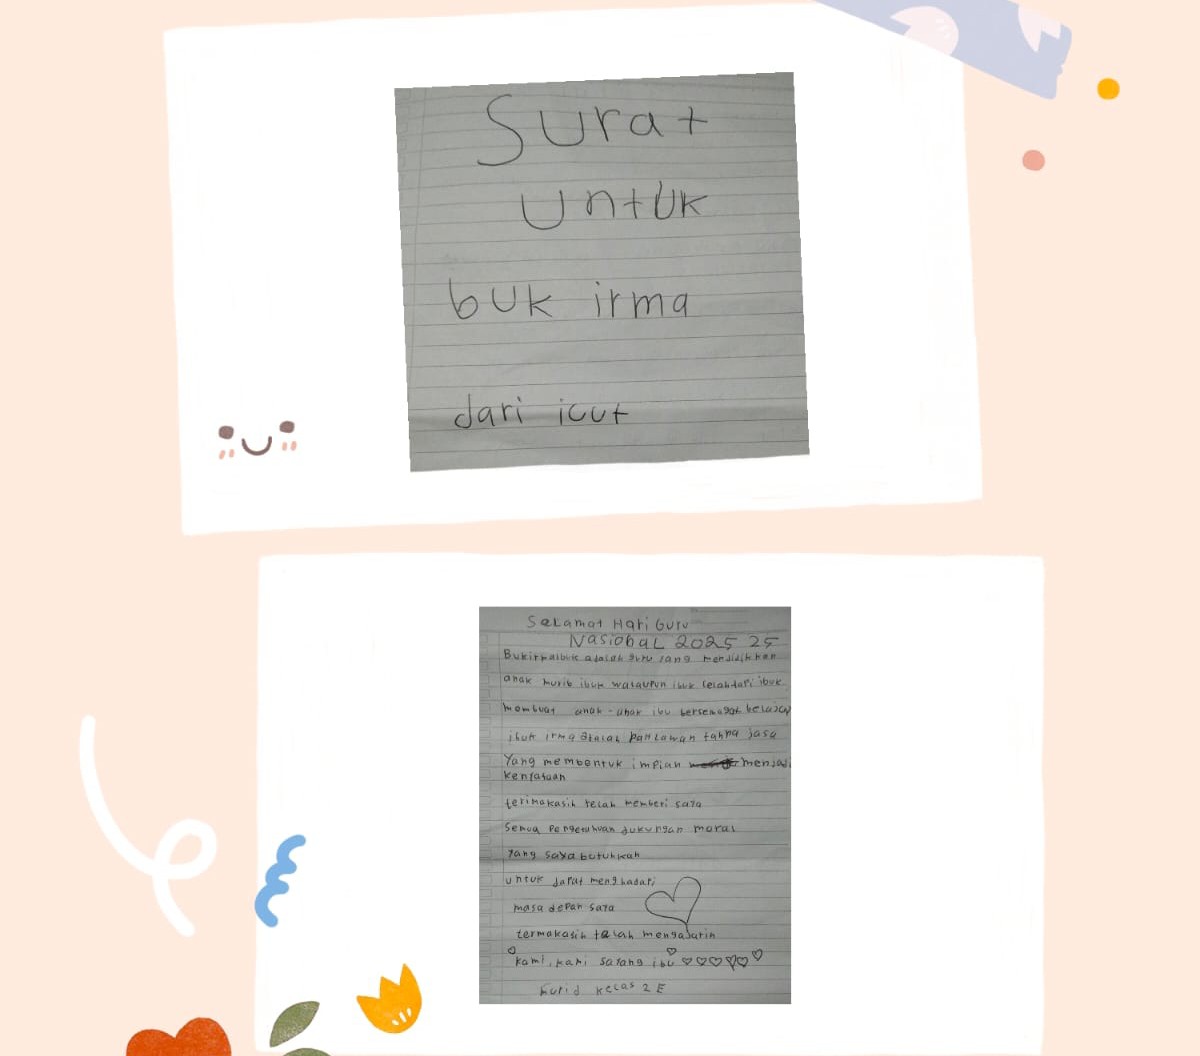 Surat
untuk
buk irma
dari icut
Selamat Hari Guru
Nasional 2025 25
adalah guru yang mendidikkan
anak murid ibuk walaupun ibuk lelah dari ibuk
membuat anak-anak ibu bersemagat belajar
ibuk irma adalah pahlawan tahpa jasa
Yang membentuk impian menjadi
kenyataan
terimakasih telah memberi saya
Semua Pengetuhuan dukungan moral
Yang saya butuhkah
untuk dapat menghadapi
masa depan saya
termakasih telah mengajarin
kami, kami sayang ibu
murid kelas 2 E